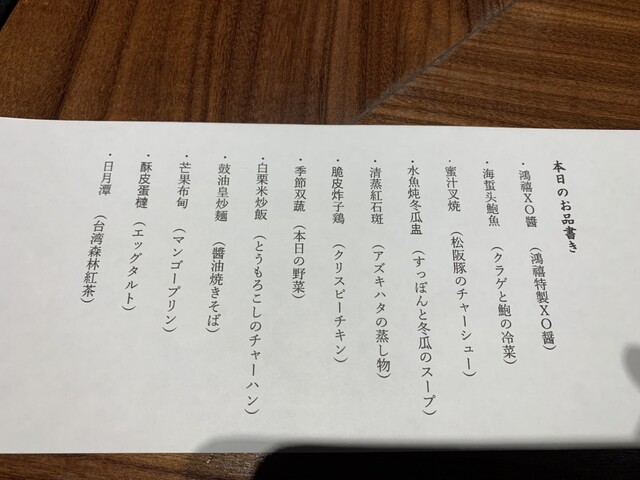 本日のお品書き
・鴻禧XO醬 (鴻禧特製XO醤)
・海蜇头鮑魚 (クラゲと鮑の冷菜)
・蜜汁叉焼 (松阪豚のチャーシュー)
・水魚炖冬瓜盅 (すっぽんと冬瓜のスープ)
・清蒸紅石斑 (アズキハタの蒸し物)
・脆皮炸子鶏 (クリスピーチキン)
・季節双蔬 (本日の野菜)
・白粟米炒飯 (とうもろこしのチャーハン)
・鼓油皇炒麺 (醬油焼きそば)
・芒果布甸 (マンゴープリン)
・酥皮蛋橽 (エッグタルト)
・日月潭 (台湾森林紅茶)